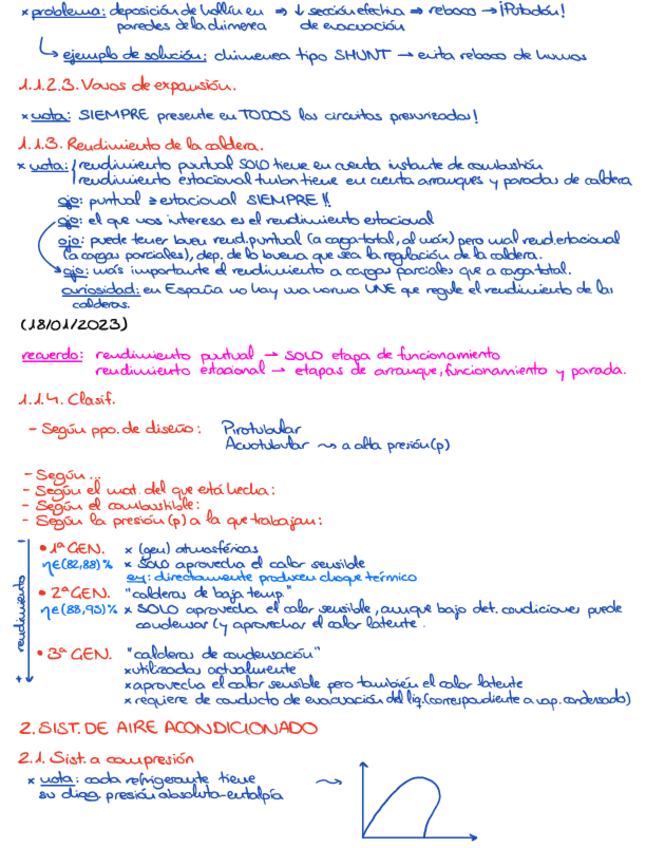 × problema: deposición de hollín en ⇒ ↓ sección efectiva ⇒ reboco → ¡Putadón!
paredes de la chimenea de evacuación
↳ ejemplo de solución: chimenea tipo SHUNT → evita reboco de humos
1.1.2.3. Vasos de expansión.
× nota: SIEMPRE presente en TODOS los circuitos presurizados!
1.1.3. Rendimiento de la caldera.
× nota: rendimiento puntual SOLO tiene en cuenta instante de combustión
rendimiento estacional tmbn tiene en cuenta arranques y paradas de caldera
ojo: puntual ≥ estacional SIEMPRE!!
ojo: el que nos interesa es el rendimiento estacional
ojo: puede tener buen rend. puntual (a carga total, al máx) pero mal rend. estacional
(a cargas parciales), dep. de lo buena que sea la regulación de la caldera.
ojo: más importante el rendimiento a cargas parciales que a carga total.
curiosidad: en España no hay una norma UNE que regule el rendimiento de las
calderas.
(18/01/2023)
recuerdo: rendimiento puntual → SOLO etapa de funcionamiento
rendimiento estacional → etapas de arranque, funcionamiento y parada.
1.1.4. Clasif.
- Según ppo. de diseño: Pirotubular
Acuotubular ⇝ a alta presión (p)
- Según...
- Según el mat. del que está hecha:
- Según el combustible:
- Según la presión (p) a la que trabajan:
• 1ª GEN. × (gen) atmosféricas
η∈(82,88)% × SOLO aprovecha el calor sensible
ej: directamente producen choque térmico
• 2ª GEN. "calderas de baja temp."
η∈(88,95)% × SOLO aprovecha el calor sensible, aunque bajo det. condiciones puede
condensar (y aprovechar el calor latente.
rendimiento
- +
• 3ª GEN. "calderas de condensación"
× utilizadas actualmente
× aprovecha el calor sensible pero también el calor latente
× requiere de conducto de evacuación del líq. (correspondiente a vap. condensado)
2. SIST. DE AIRE ACONDICIONADO
2.1. Sist. a compresión
× nota: cada refrigerante tiene ⇝
su diag. presión absoluta-entalpía